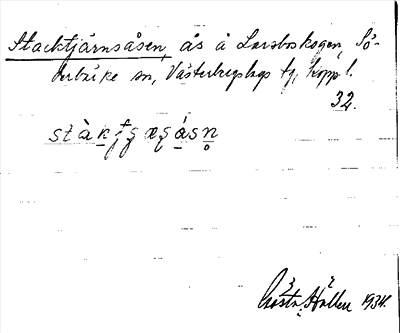 Stacktjärnsåsen, ås å Larsboskogen, Sö-
derbärke sn, Västerbergslags tg, Kopp. l.
32.
Gösta Hallen 1934.